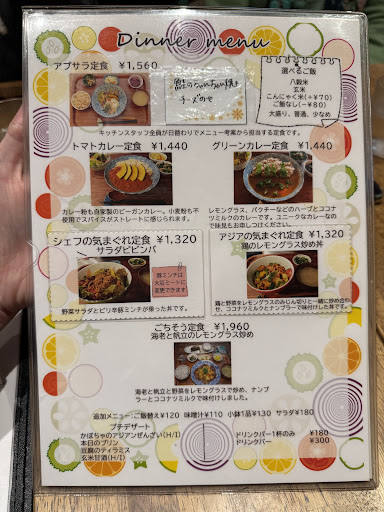 Dinner menu
アプサラ定食 ¥1,560
鮭のちゃんちゃん焼き
チーズのせ
選べるご飯
八穀米
玄米
こんにゃく米(+¥70)
ご飯なし(−¥80)
大盛り、普通、少なめ
キッチンスタッフ全員が日替わりでメニュー考案から担当する定食です。
トマトカレー定食 ¥1,440
グリーンカレー定食 ¥1,440
カレー粉も自家製のビーガンカレー。小麦粉も不
使用でスパイスがストレートに感じられます。
レモングラス、パクチーなどのハーブとココナ
ツミルクのカレーです。ユニークなカレーなの
で味見もお申しつけください。
シェフの気まぐれ定食 ¥1,320
サラダビビンバ
豚ミンチは
大豆ミートに
変更できます
野菜サラダとピリ辛豚ミンチが乗った丼です。
アジアの気まぐれ定食 ¥1,320
鶏のレモングラス炒め丼
鶏と野菜をレモングラスのみじん切りと一緒に炒め合わ
せ、ココナツミルクとナンプラーで味付けした丼です。
ごちそう定食 ¥1,960
海老と帆立のレモングラス炒め
海老と帆立と野菜をレモングラスで炒め、ナンプ
ラーとココナツミルクで味付けしました。
追加メニュー:ご飯替え¥120 味噌汁¥110 小鉢1品¥130 サラダ¥180
プチデザート
かぼちゃのアジアンぜんざい(H/I)
本日のプリン
豆腐のティラミス
玄米甘酒(H/I)
ドリンクバー1杯のみ ¥180
ドリンクバー ¥300